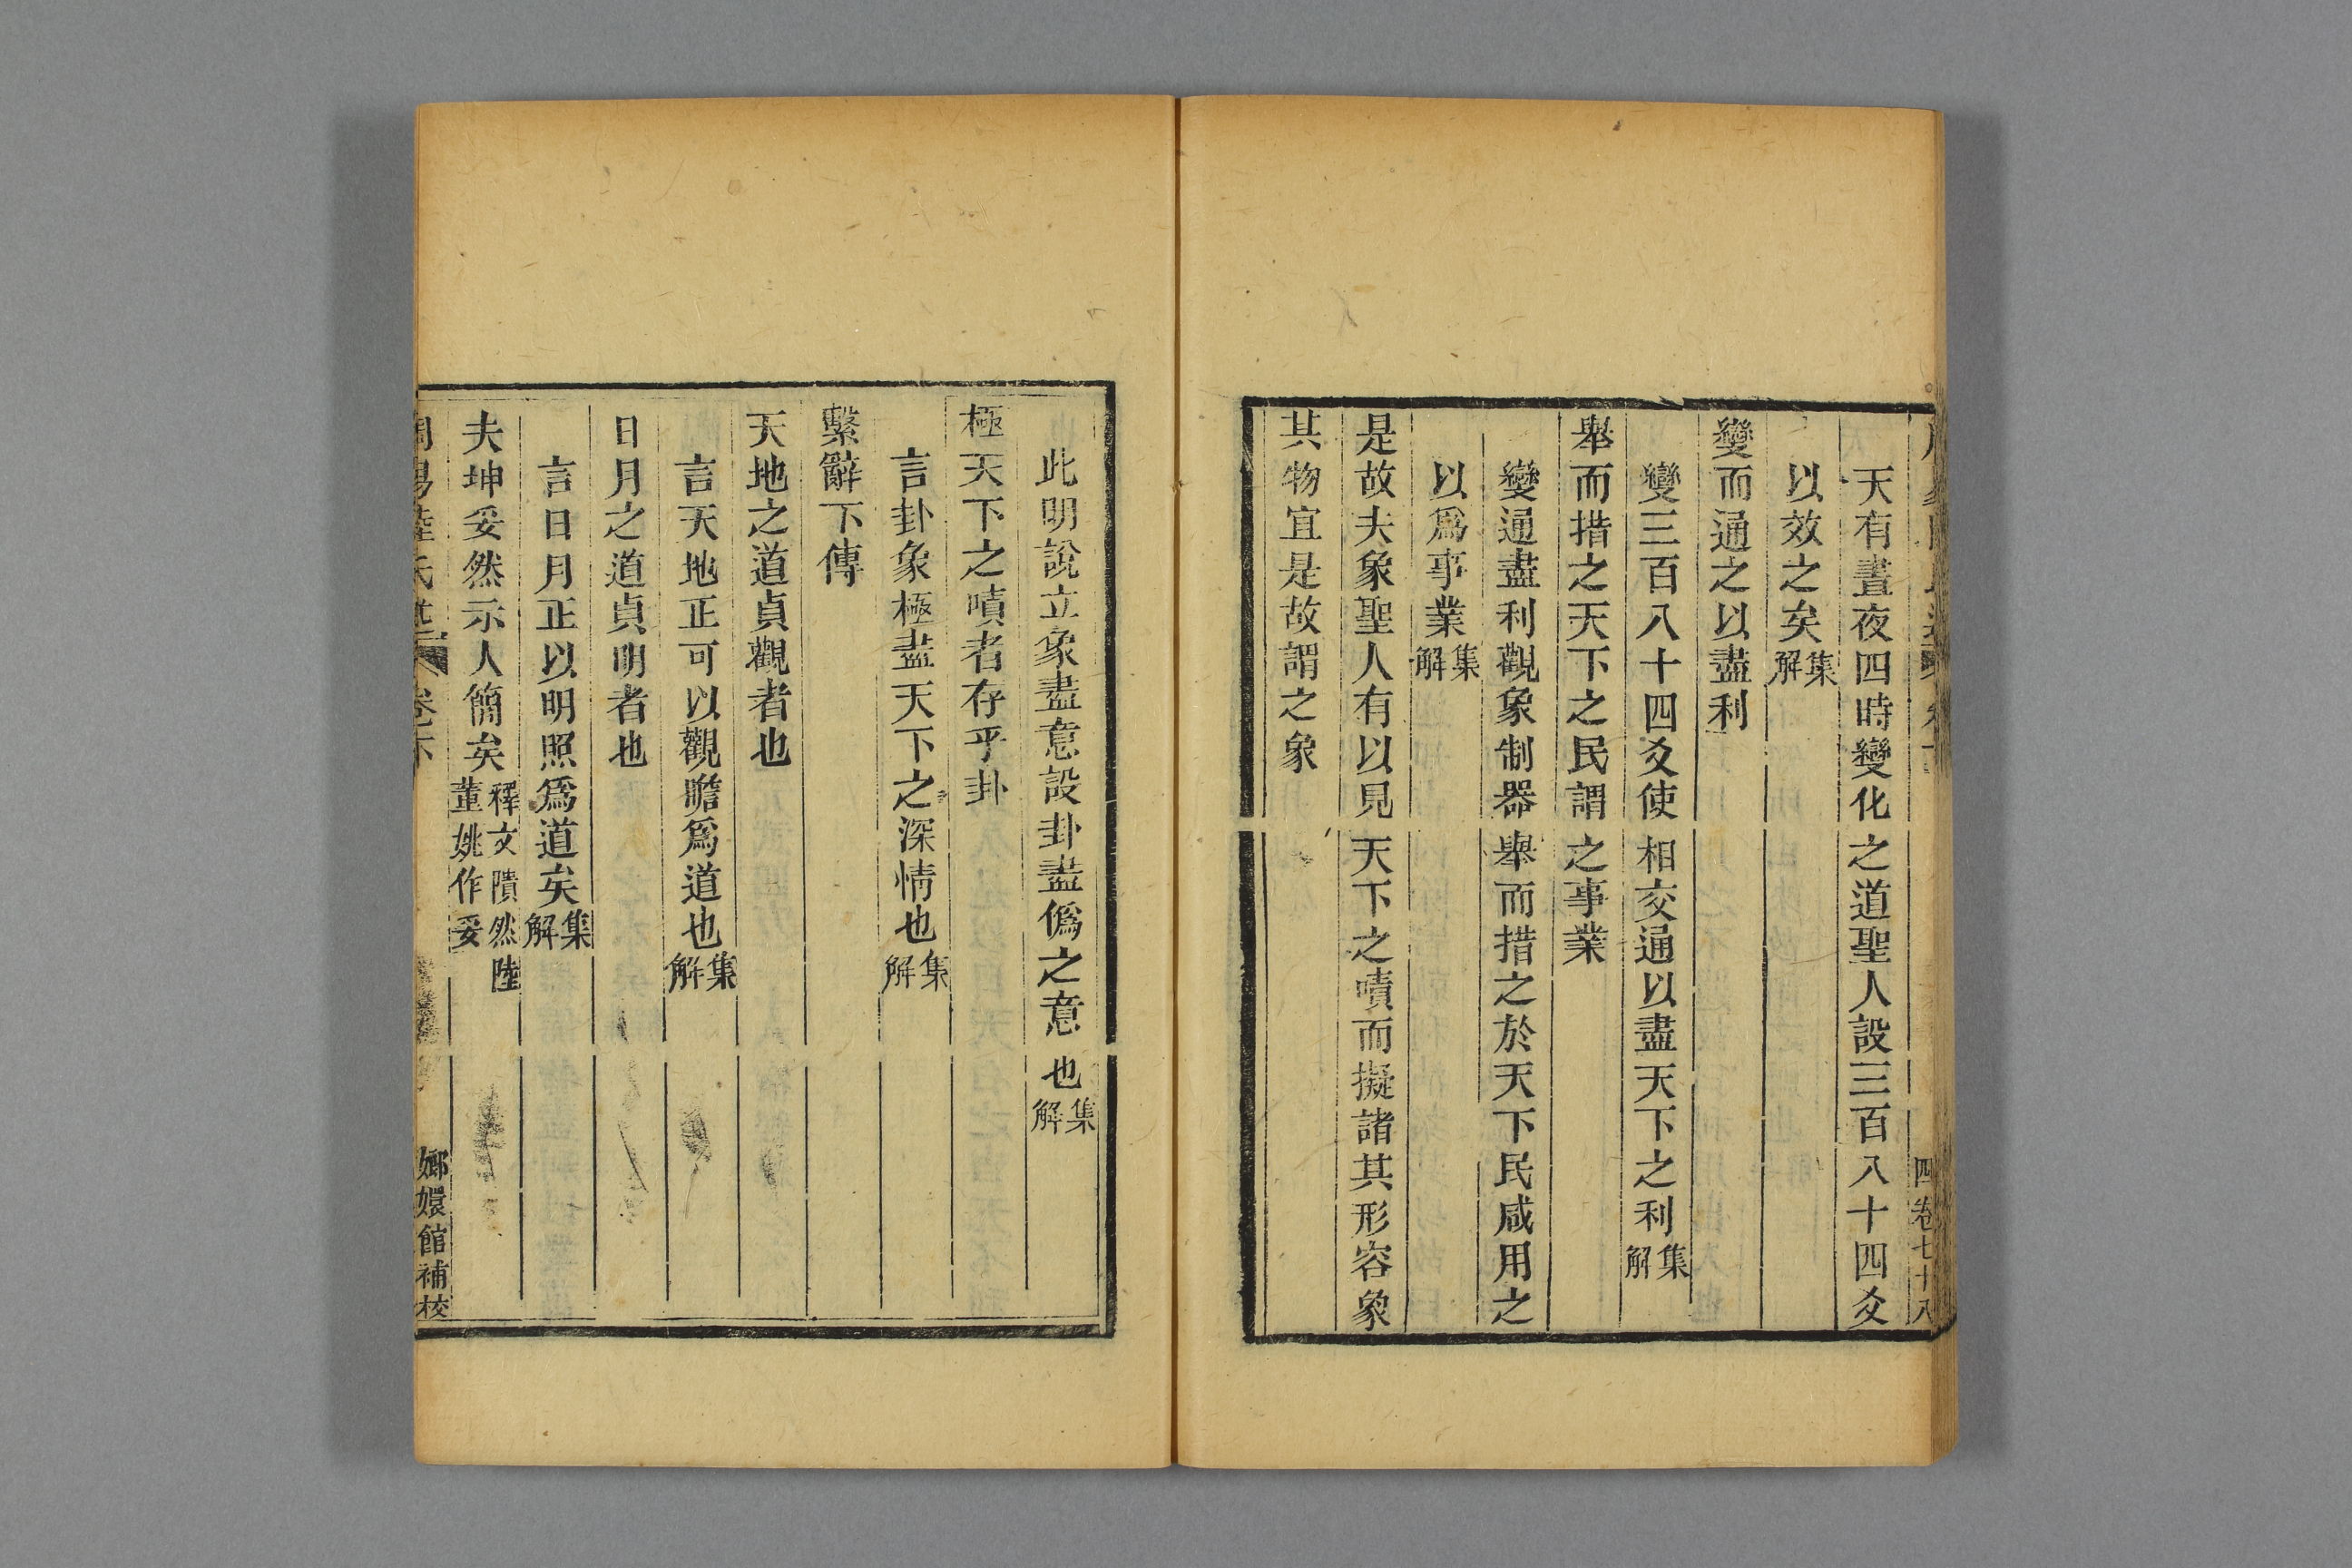 天有晝夜四時變化之道聖人設三百八十四爻
以效之矣集解
變而通之以盡利
變三百八十四爻使相交通以盡天下之利集解
舉而措之天下之民謂之事業
變通盡利觀象制器舉而措之於天下民咸用之
以爲事業集解
是故夫象聖人有以見天下之嘖而擬諸其形容象
其物宜是故謂之象
此明說立象盡意設卦盡僞之意也集解
極天下之嘖者存乎卦
言卦象極盡天下之深情也集解
繫辭下傳
天地之道貞觀者也
言天地正可以觀瞻爲道也集解
日月之道貞明者也
言日月正以明照爲道矣集解
夫坤妥然示人簡矣釋文隤然陸董姚作妥
周易陸氏述 卷下
嫏嬛館補校